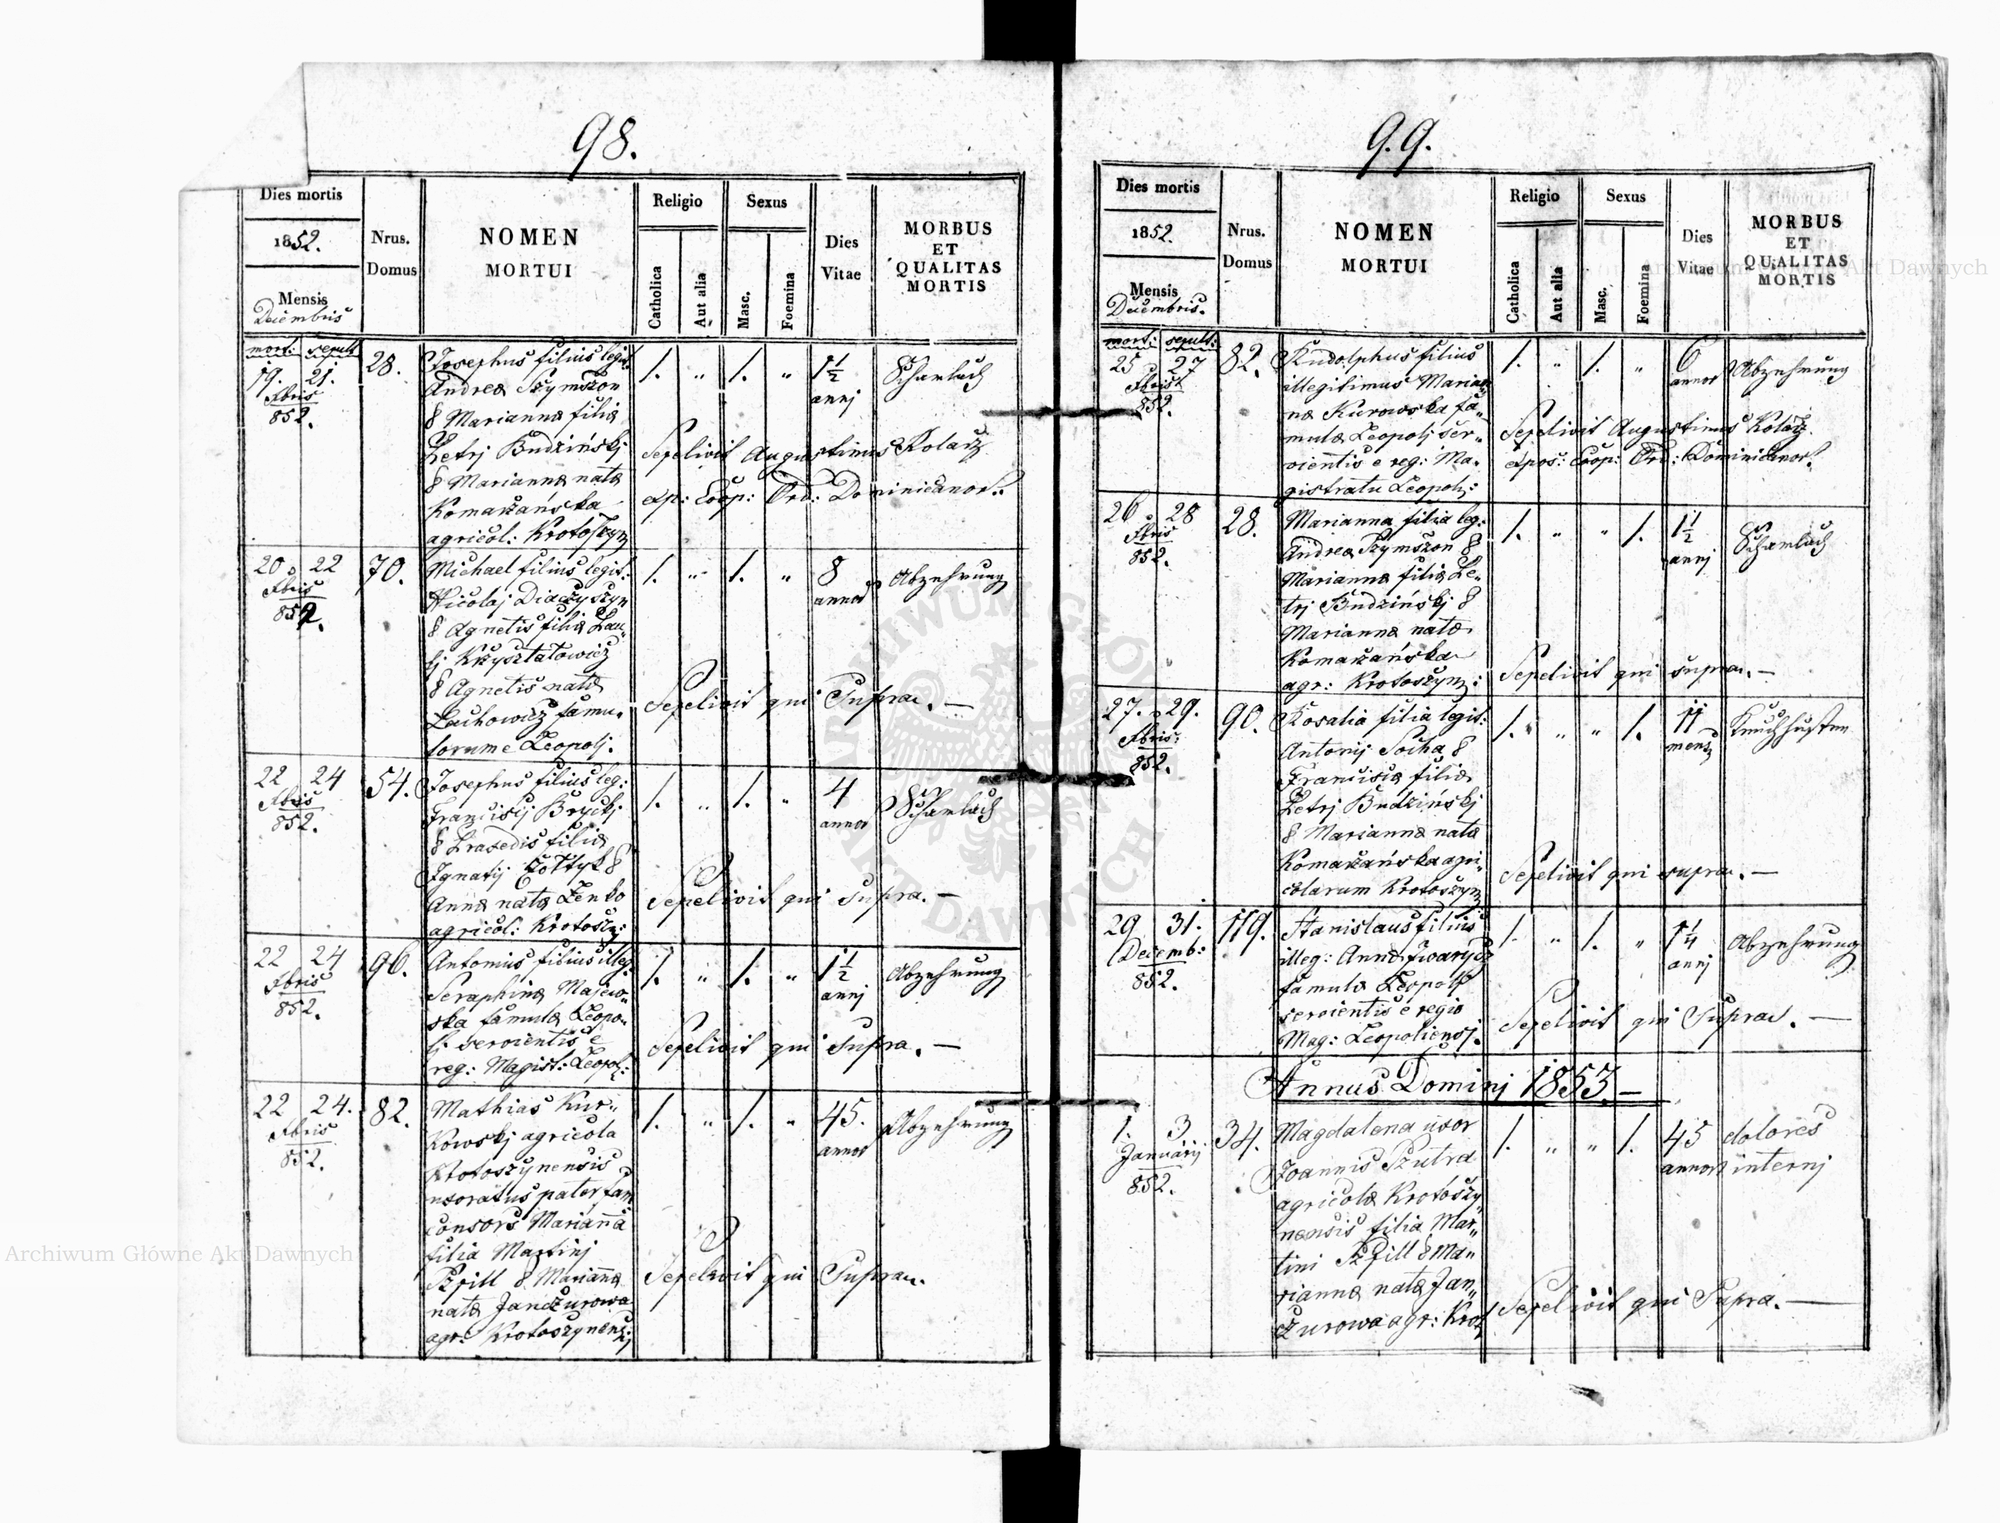 98.
Dies mortis
1852.
Mensis
Decembris
Nrus.
Domus
NOMEN
MORTUI
Religio
Catholica
Aut alia
Sexus
Masc.
Foemina
Dies
Vitae
MORBUS
ET
QUALITAS
MORTIS
mort: sepult
19. 21.
Xbris
852.
28.
Josephus filius legit:
Andreæ Szymszon
& Mariannæ filiæ
Petrj Budzińskj
& Mariannæ natæ
Komarzańska
agricol: Krotoszyn
1. " 1. "
1½
annj
Scharlach
Sepelivit Augustinus Kolarz
exp: Coop: Ord: Dominicanor:
20 22
Xbris
852.
70.
Michael filius legit:
Nicolaj Diaczyszyn
& Agnetis filiæ Pau-
lj Krzyształowicz
& Agnetis natæ
Lachowicz famu-
lorum e Leopolj.
1. " 1. "
8
annor
Abzehrung
Sepelivit qui Supra. —
22 24
Xbris
852.
54.
Josephus filius leg:
Franciscj Bryckj
& Praxedis filiæ
Ignatij Sołtyk &
Annæ natæ Zenko
agricol: Krotoszy:
1. " 1. "
4
annor
Scharlach
Sepelivit qui Supra. —
22 24
Xbris
852.
96.
Antonius filius illeg:
Seraphinæ Majew-
ska famulæ Leopo-
lj servientis e
reg: Magist: Leopol:
1. " 1. "
1½
annj
Abzehrung
Sepelivit qui Supra. —
22 24.
Xbris
852.
82.
Mathias Kur-
kowskj agricola
Krotoszynensis
uxoratus pater fam
consors Marianna
filia Martinj
Szpill & Mariannæ
natæ Janczurowa
agr: Krotoszynensj
1. " 1. "
45.
annor
Abzehrung
Sepelivit qui Supra.
99.
Dies mortis
1852.
Mensis
Decembris.
Nrus.
Domus
NOMEN
MORTUI
Religio
Catholica
Aut alia
Sexus
Masc.
Foemina
Dies
Vitae
MORBUS
ET
QUALITAS
MORTIS
mort: sepult:
25 27
Xbris
852.
82.
Rudolphus filius
illegitimus Marian-
næ Kurowska fa-
mulæ Leopolj ser-
vientis e reg: Ma-
gistratu Leopolj:
1. " 1. "
6
annor
Abzehrung
Sepelivit Augustinus Kolarz
expos: Coop: Ord: Dominicanor:
26 28
Xbris
852.
28.
Marianna filia leg:
Andreæ Szymszon &
Mariannæ filiæ Pe-
trj Budzińskj &
Mariannæ natæ
Komarzańska
agr: Krotoszyn:
1. " " 1.
1½
annj
Scharlach
Sepelivit qui supra. —
27. 29.
Xbris
852.
90.
Rosalia filia legit:
Antonij Socha &
Franciscæ filiæ
Petrj Budzińskj
& Mariannæ natæ
Komarzańska agri-
colarum Krotoszyn
1. " " 1.
11
mens
Keuchhusten
Sepelivit qui supra. —
29 31.
Decemb:
852.
119.
Stanislaus filius
illeg: Annæ Iwarycz
famulæ Leopolj
servientis e regio
Mag: Leopoliensj.
1. " 1. "
1¼
annj
Abzehrung
Sepelivit qui Supra. —
Annus Dominj 1853. —
1. 3
Januarij
852.
34.
Magdalena uxor
Joannis Szutra
agricolæ Krotoszy-
nensis filia Mar-
tini Szpill & Ma-
riannæ natæ Jan-
czurowa agr: Krot
1. " " 1.
45
annor
dolores
internj
Sepelivit qui Supra. —
ARCHIWUM GŁÓWNE AKT DAWNYCH
Archiwum Główne Akt Dawnych
Archiwum Główne Akt Dawnych